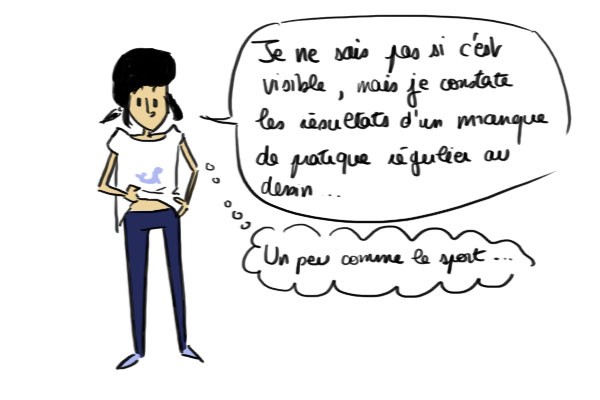 Je ne sais pas si c'est
visible, mais je constate
les résultats d'un manque
de pratique régulier au
dessin...
Un peu comme le sport...